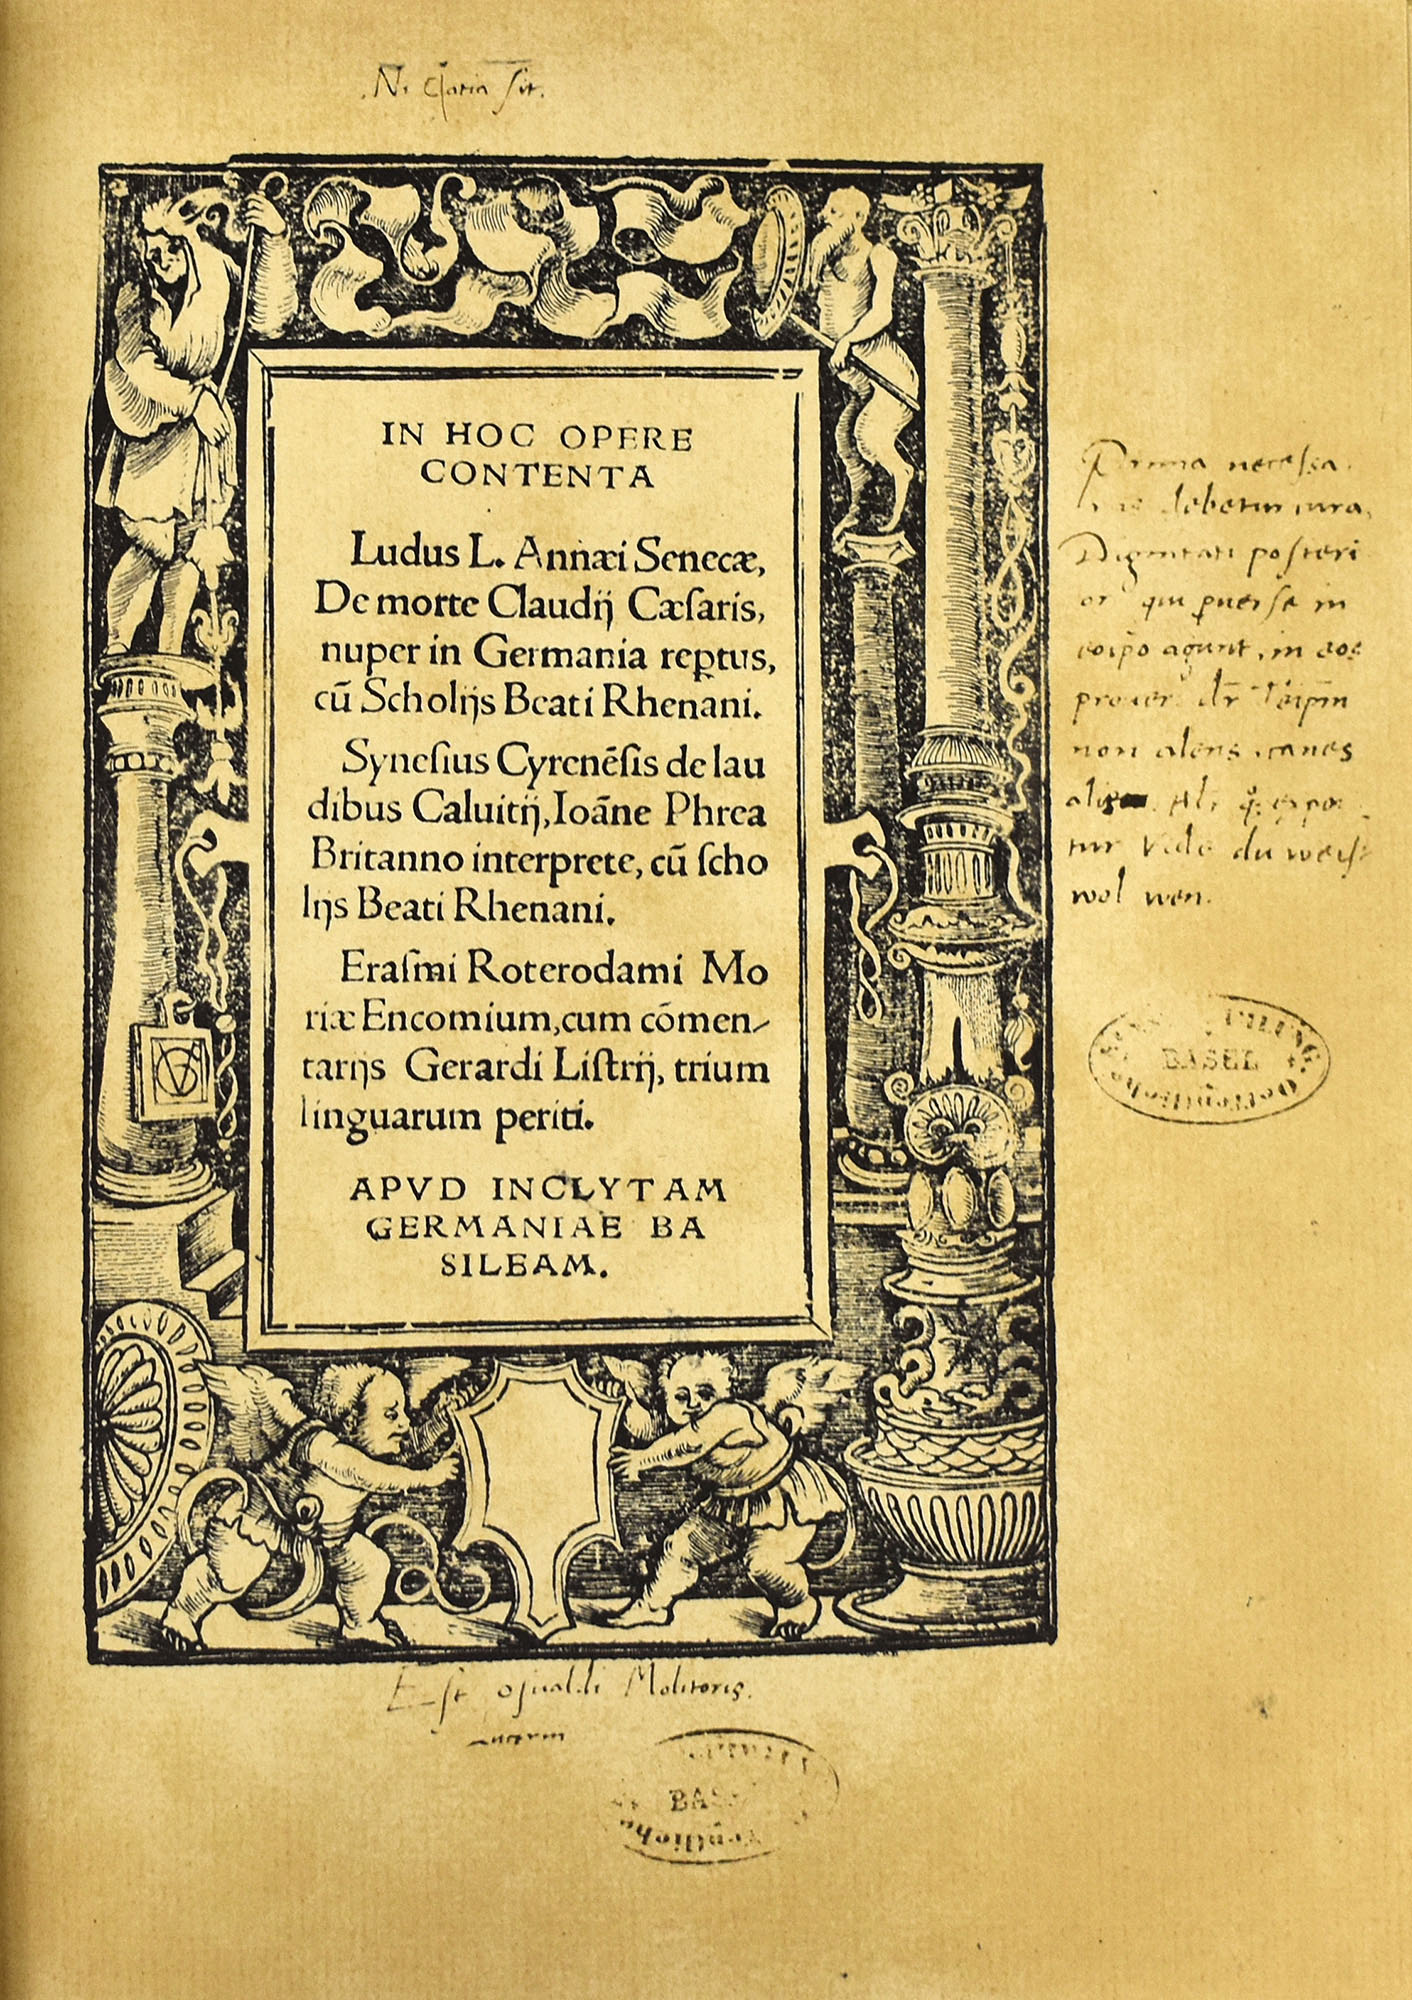 sit.
IN HOC OPERE
CONTENTA
Ludus L. Annæi Senecæ,
De morte Claudij Cæſaris,
nuper in Germania reꝑtus,
cũ Scholijs Beati Rhenani.
Syneſius Cyrenẽſis de lau
dibus Caluitij, Ioãne Phrea
Britanno interprete, cũ ſcho
lijs Beati Rhenani.
Eraſmi Roterodami Mo
riæ Encomium, cum cõmen-
tarijs Gerardi Liſtrij, trium
linguarum periti.
APVD INCLYTAM
GERMANIAE BA
SILEAM.
VG
Prima neceſſa
debetur cura,
Dignitati poſteri
or qui in
agunt, in eos
non alens, canes
tur Vide du weiſt
wol wen.
BASEL
Est Osualdi Molitoris.
BAS